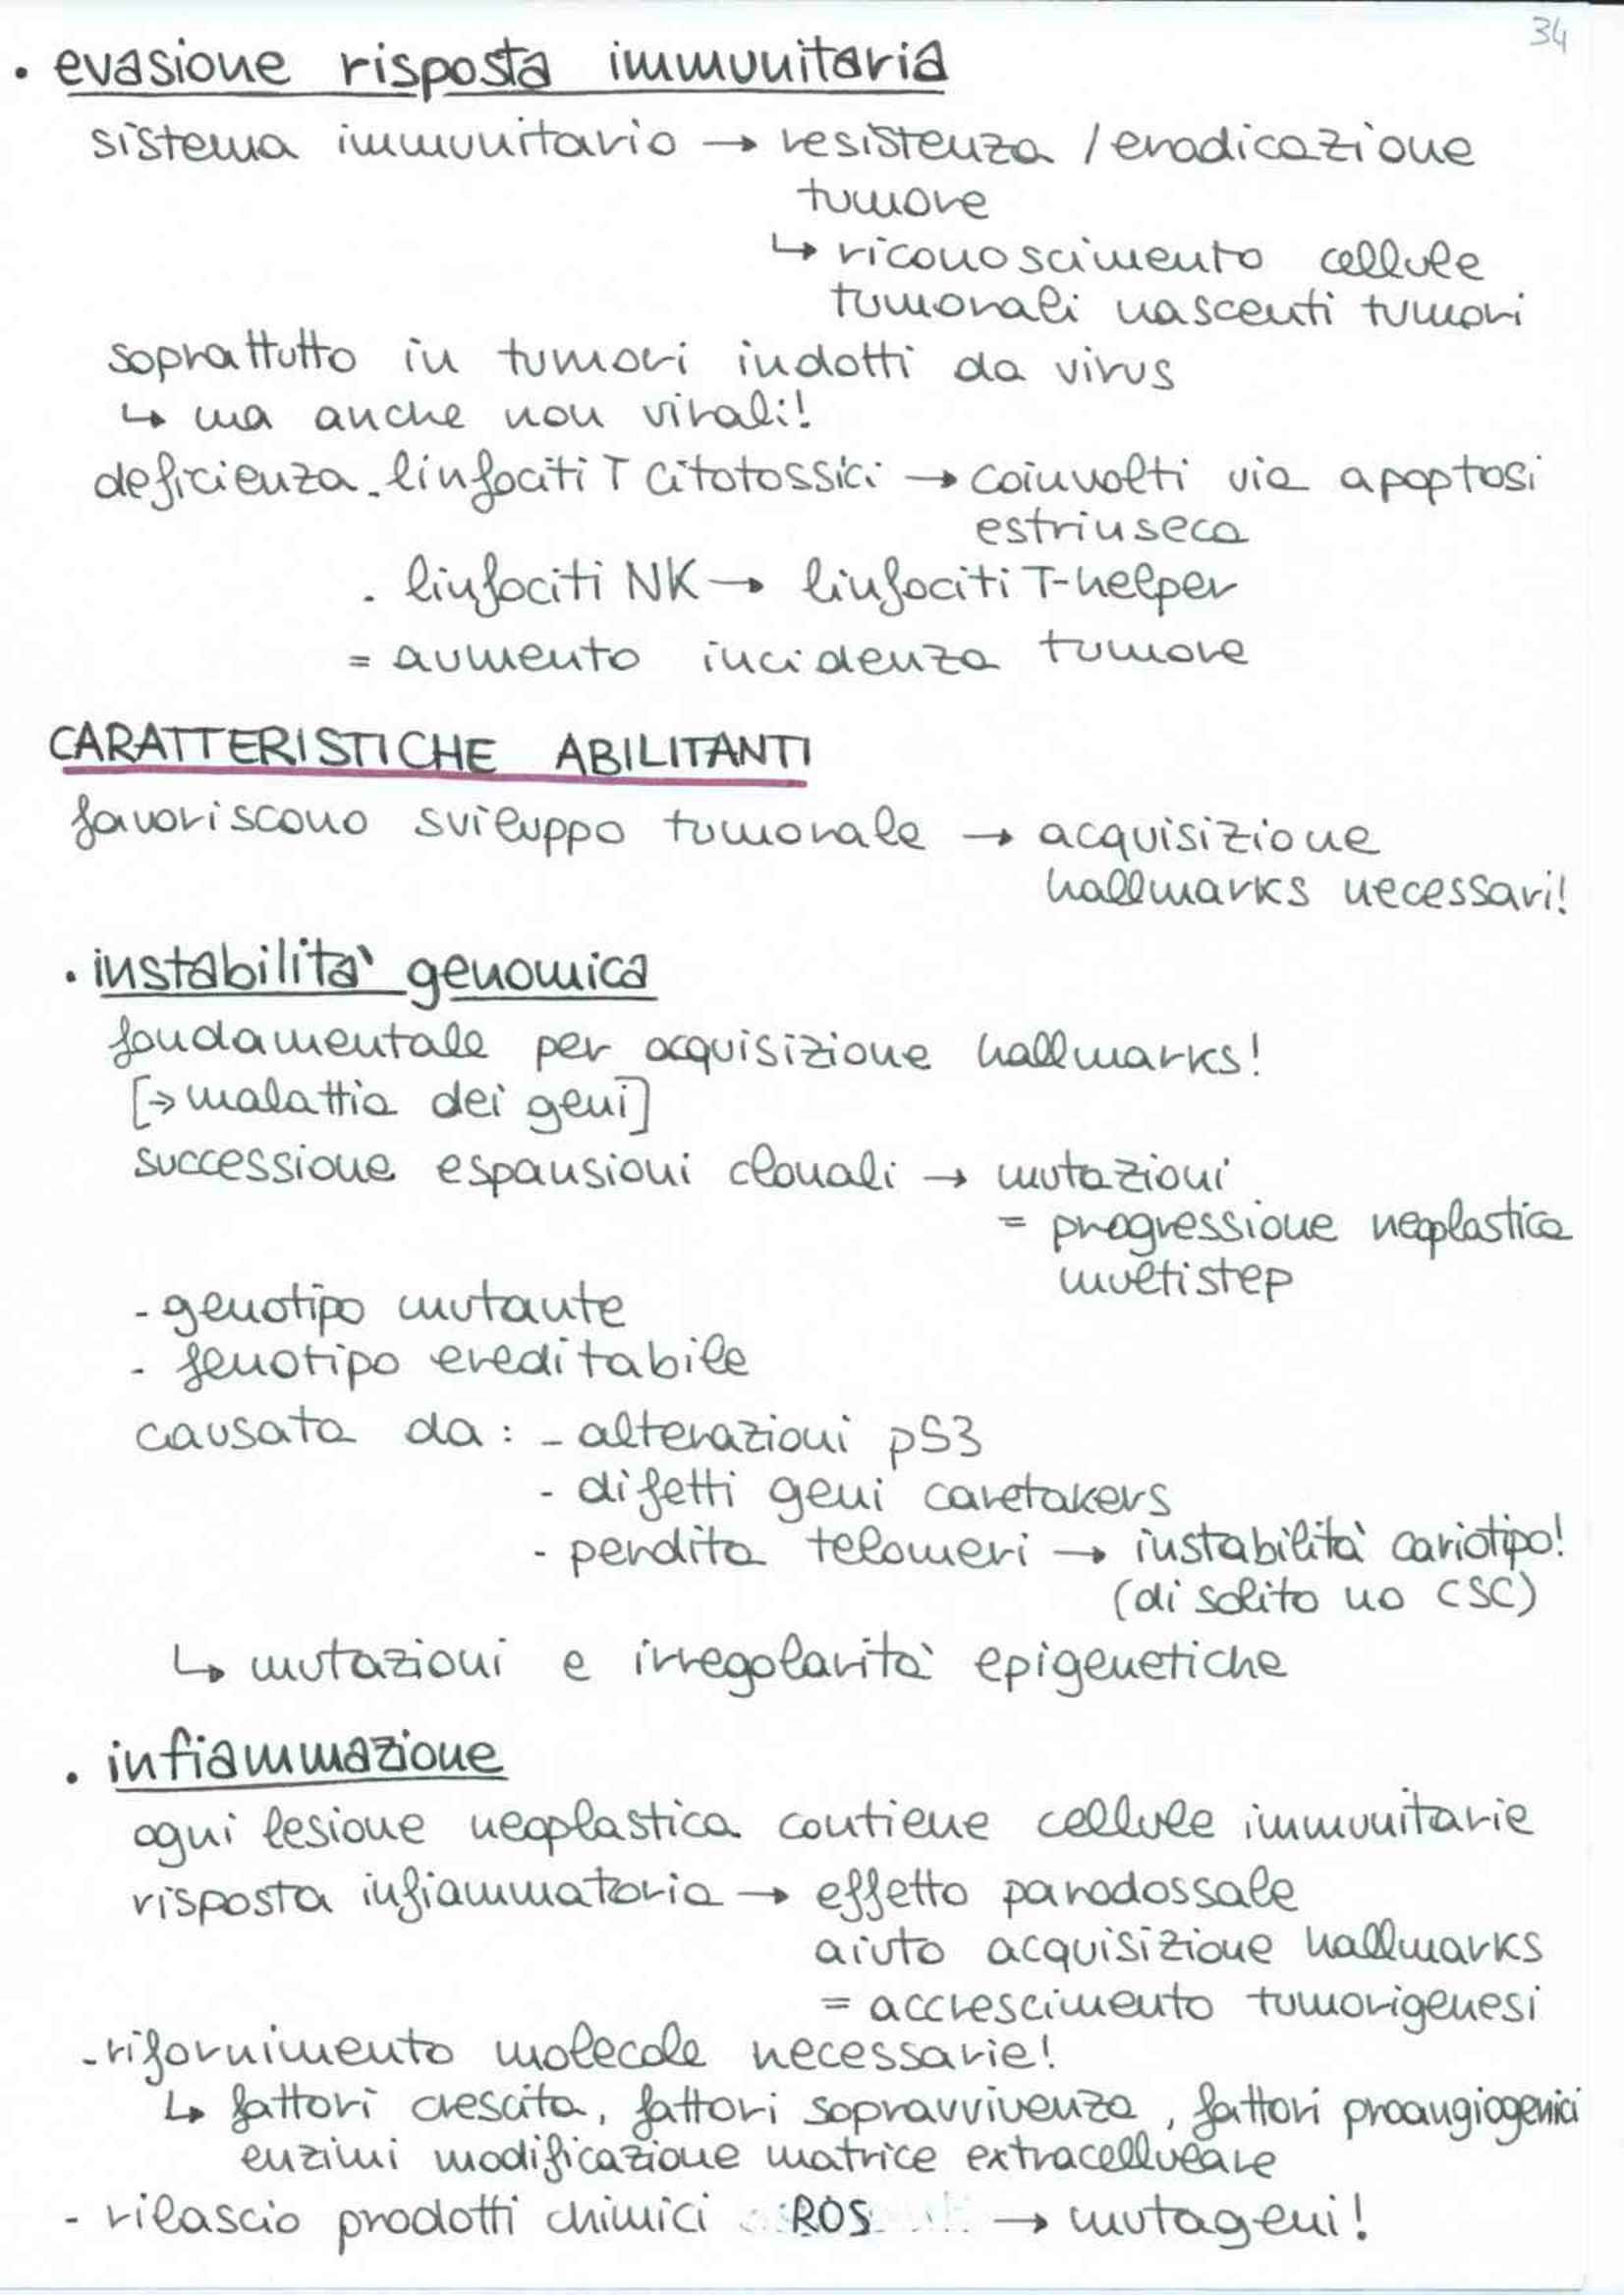 34
• evasione risposta immunitaria
sistema immunitario → resistenza / eradicazione
tumore
↳ riconoscimento cellule
tumorali nascenti tumori
soprattutto in tumori indotti da virus
↳ ma anche non virali!
deficienza - linfociti T citotossici → coinvolti via apoptosi
estrinseca
- linfociti NK → linfociti T-helper
= aumento incidenza tumore
CARATTERISTICHE ABILITANTI
favoriscono sviluppo tumorale → acquisizione
hallmarks necessari!
• instabilità genomica
fondamentale per acquisizione hallmarks!
[→ malattia dei geni]
successione espansioni clonali → mutazioni
= progressione neoplastica
multistep
- genotipo mutante
- fenotipo ereditabile
causata da: - alterazioni p53
- difetti geni caretakers
- perdita telomeri → instabilità cariotipo!
(di solito no CSC)
↳ mutazioni e irregolarità epigenetiche
• infiammazione
ogni lesione neoplastica contiene cellule immunitarie
risposta infiammatoria → effetto paradossale
aiuto acquisizione hallmarks
= accrescimento tumorigenesi
- rifornimento molecole necessarie!
↳ fattori crescita, fattori sopravvivenza, fattori proangiogenici
enzimi modificazione matrice extracellulare
- rilascio prodotti chimici ROS → mutageni!